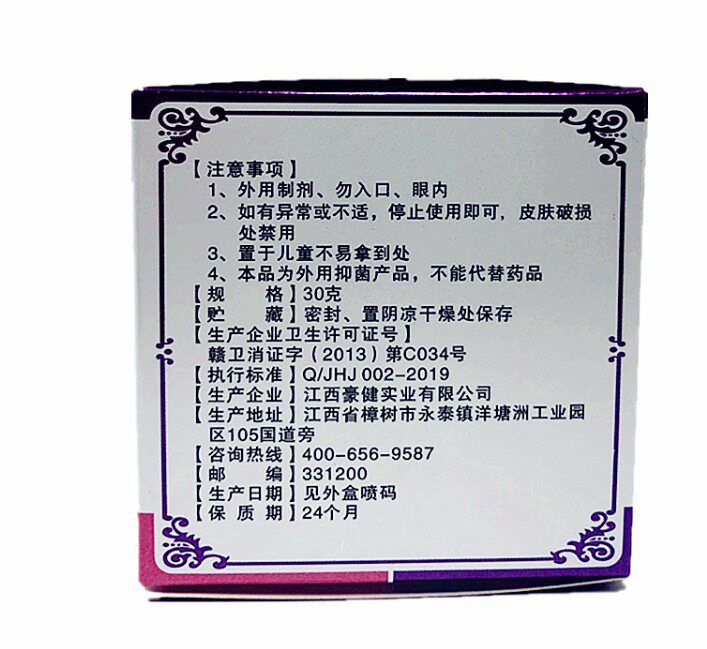 【注意事项】
1、外用制剂、勿入口、眼内
2、如有异常或不适，停止使用即可，皮肤破损
处禁用
3、置于儿童不易拿到处
4、本品为外用抑菌产品，不能代替药品
【规 格】30克
【贮 藏】密封、置阴凉干燥处保存
【生产企业卫生许可证号】
赣卫消证字（2013）第C034号
【执行标准】Q/JHJ 002-2019
【生产企业】江西豪健实业有限公司
【生产地址】江西省樟树市永泰镇洋塘洲工业园
区105国道旁
【咨询热线】400-656-9587
【邮 编】331200
【生产日期】见外盒喷码
【保 质 期】24个月